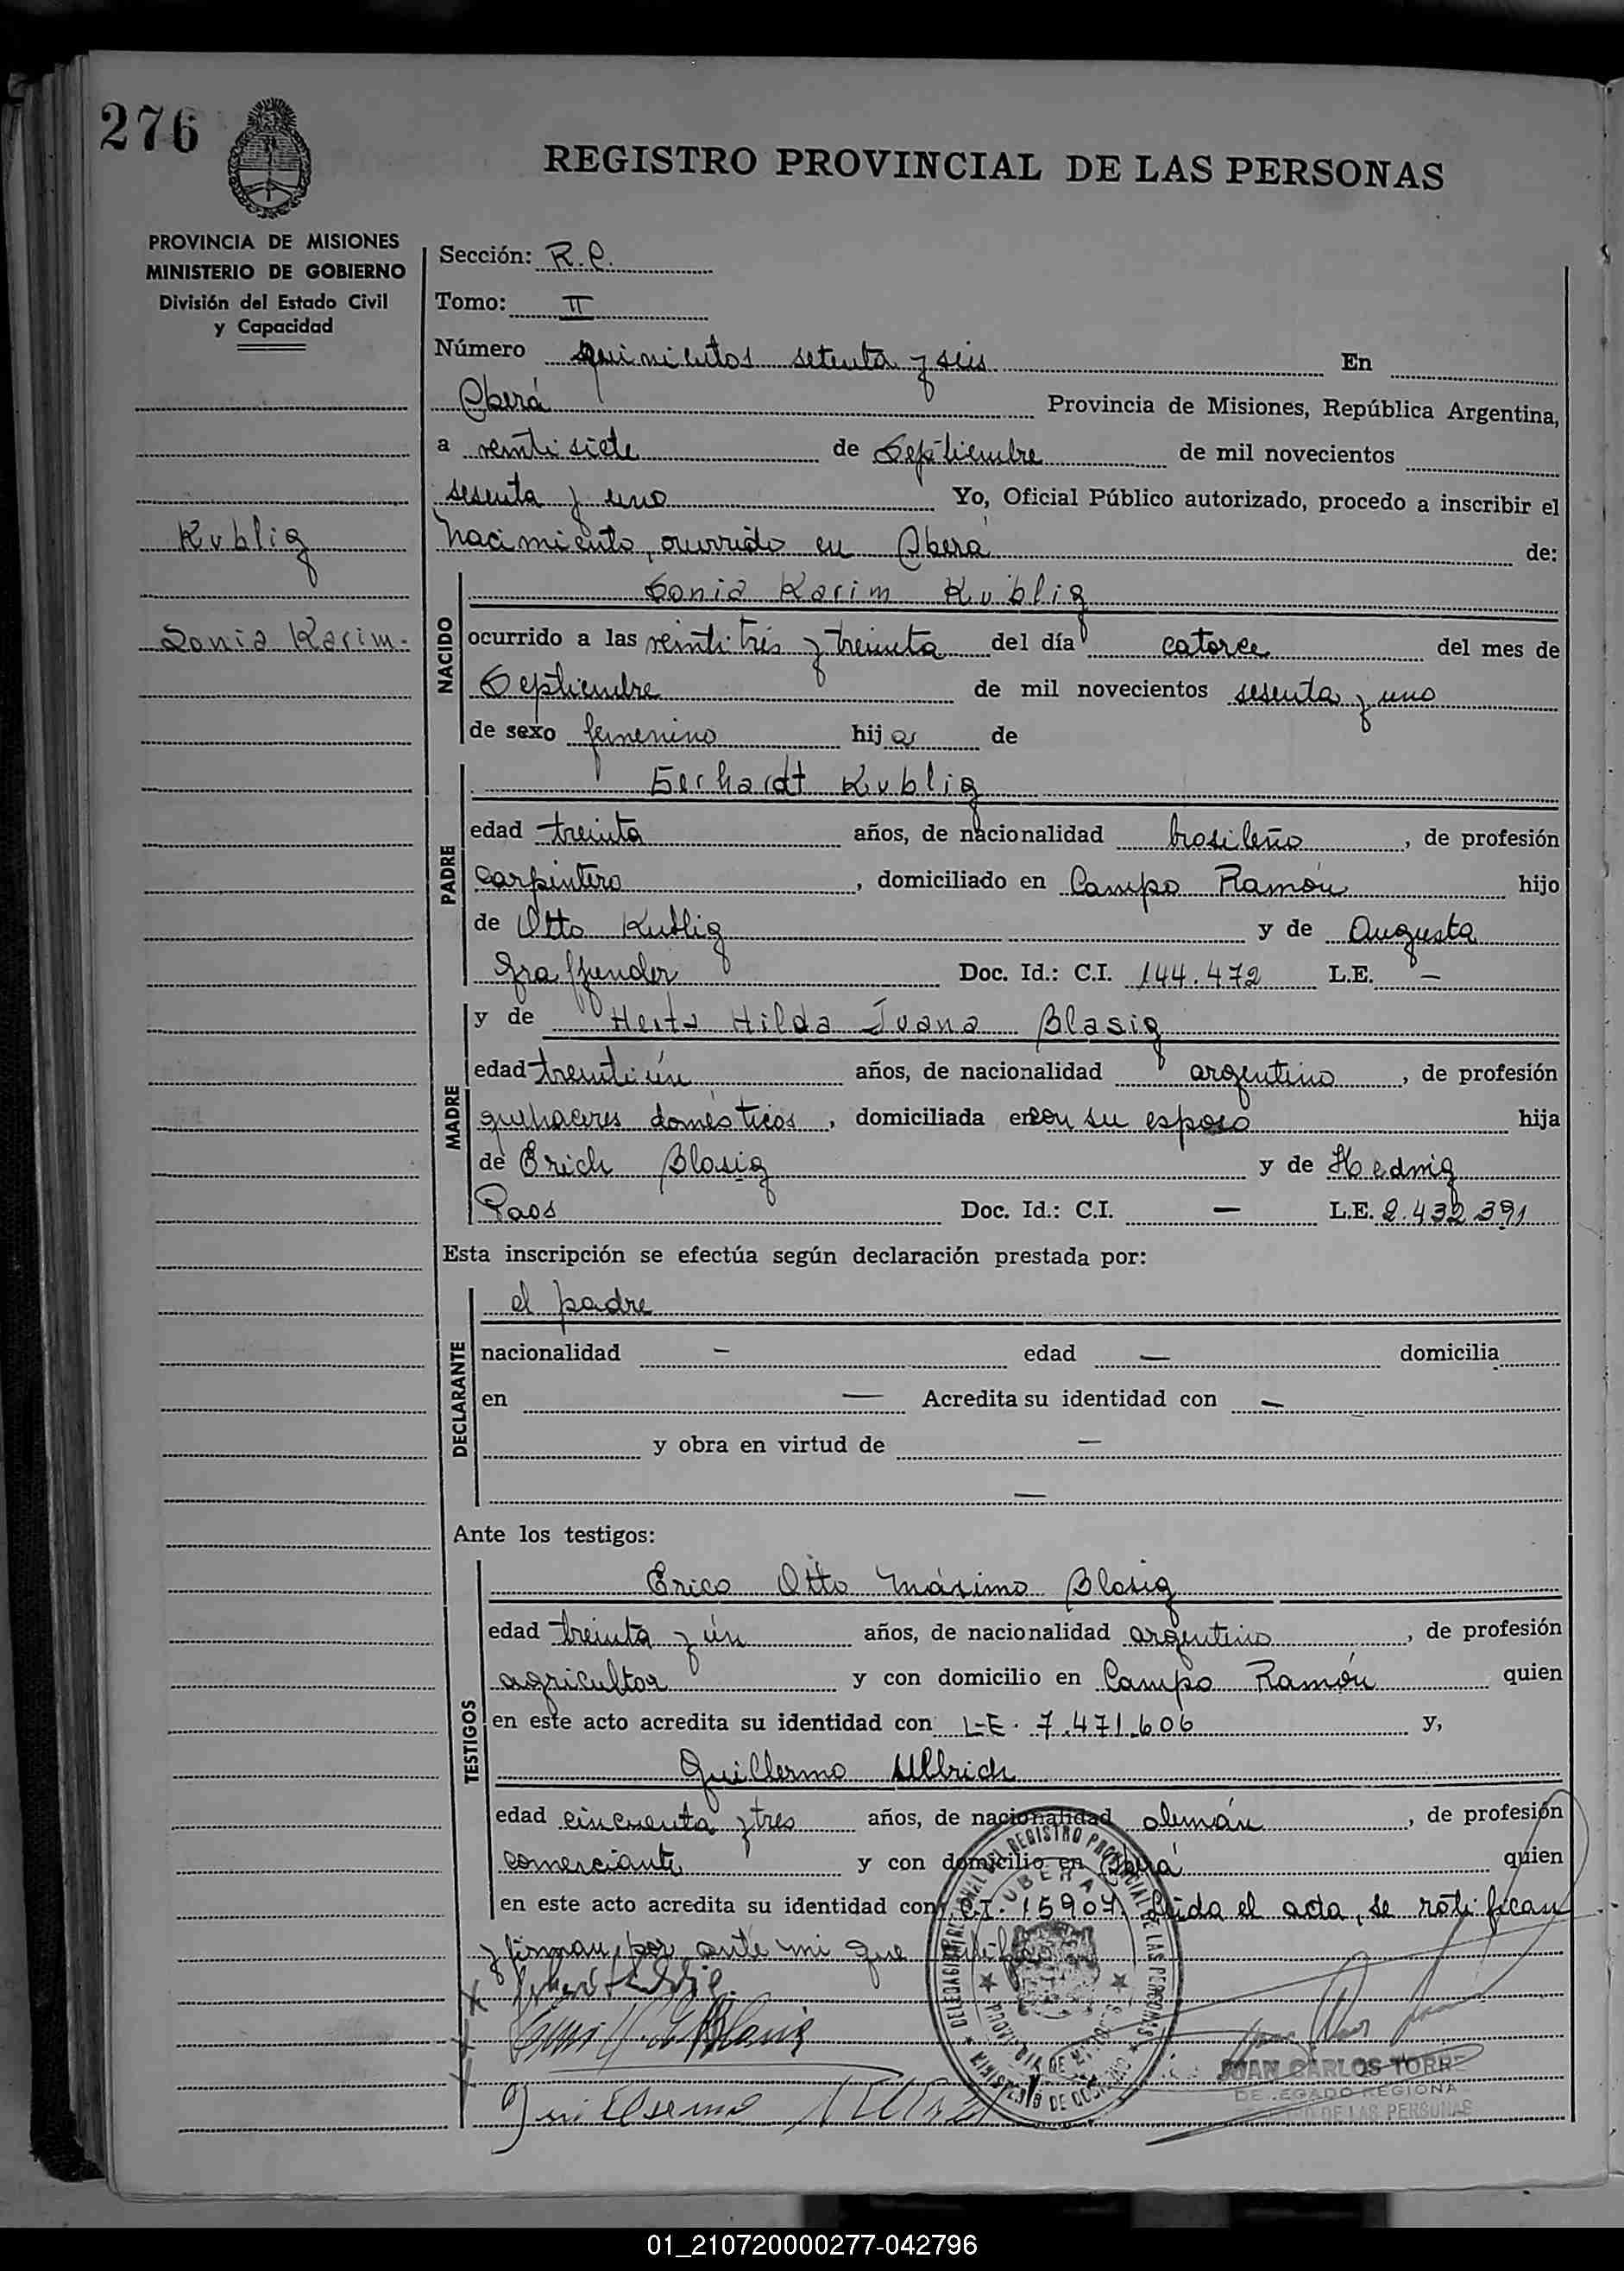 276
REGISTRO PROVINCIAL DE LAS PERSONAS
PROVINCIA DE MISIONES
MINISTERIO DE GOBIERNO
División del Estado Civil
y Capacidad
Kublig
Sonia Karim.
Sección: R.P.
Tomo: II
Número quinientos setenta y seis En
Oberá Provincia de Misiones, República Argentina,
a veintisiete de Septiembre de mil novecientos
sesenta y uno Yo, Oficial Público autorizado, procedo a inscribir el
nacimiento, ocurrido en Oberá de:
NACIDO
Sonia Karim Kublig
ocurrido a las veintitrés y treinta del día catorce del mes de
Septiembre de mil novecientos sesenta y uno
de sexo femenino hija de
PADRE
Gerhardt Kublig
edad treinta años, de nacionalidad brasileño, de profesión
carpintero, domiciliado en Campo Ramón hijo
de Otto Kublig y de Augusta
Graffunder Doc. Id.: C.I. 144.472 L.E. —
MADRE
y de Herta Hilda Juana Blasig
edad treinti ún años, de nacionalidad argentino, de profesión
quehaceres domésticos, domiciliada en con su esposo hija
de Erich Blasig y de Hedwig
Paos Doc. Id.: C.I. — L.E. 2.432.391
Esta inscripción se efectúa según declaración prestada por:
DECLARANTE
el padre
nacionalidad — edad — domicilia
en — Acredita su identidad con —
y obra en virtud de —
—
Ante los testigos:
TESTIGOS
Erico Otto Máximo Blasig
edad treinta y ún años, de nacionalidad argentino, de profesión
agricultor y con domicilio en Campo Ramón quien
en este acto acredita su identidad con L.E. 7.471.606 y,
Guillermo Ullrich
edad cincuenta y tres años, de nacionalidad alemán, de profesión
comerciante y con domicilio en Oberá quien
en este acto acredita su identidad con C.I. 15907. Leida el acta, se ratifican
y firman por ante mi que
Guillermo
OBERA
PROVINCIA DE MISIONES
MINISTERIO DE GOBIERNO
JUAN CARLOS TORRE
DELEGADO REGIONAL
DE LAS PERSONAS
01_210720000277-042796